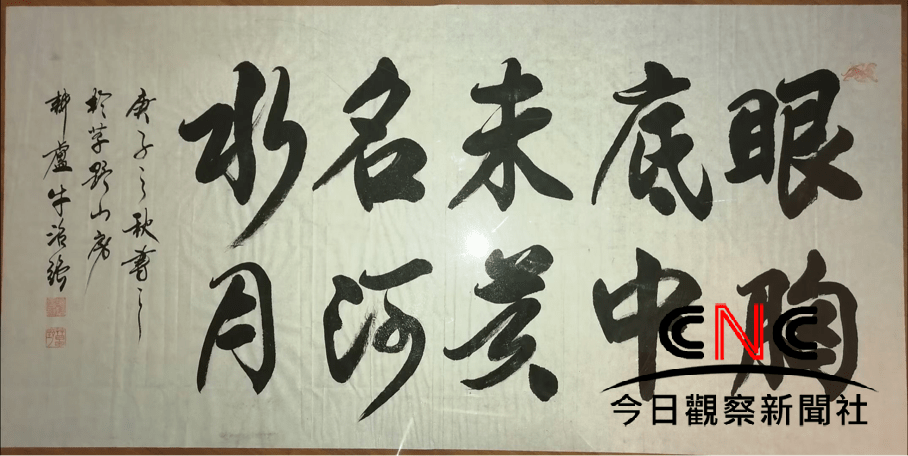 眼底未名水
胸中黄河月
庚子之秋書之
於草野山房
盧牛
CNC
今日觀察新聞社